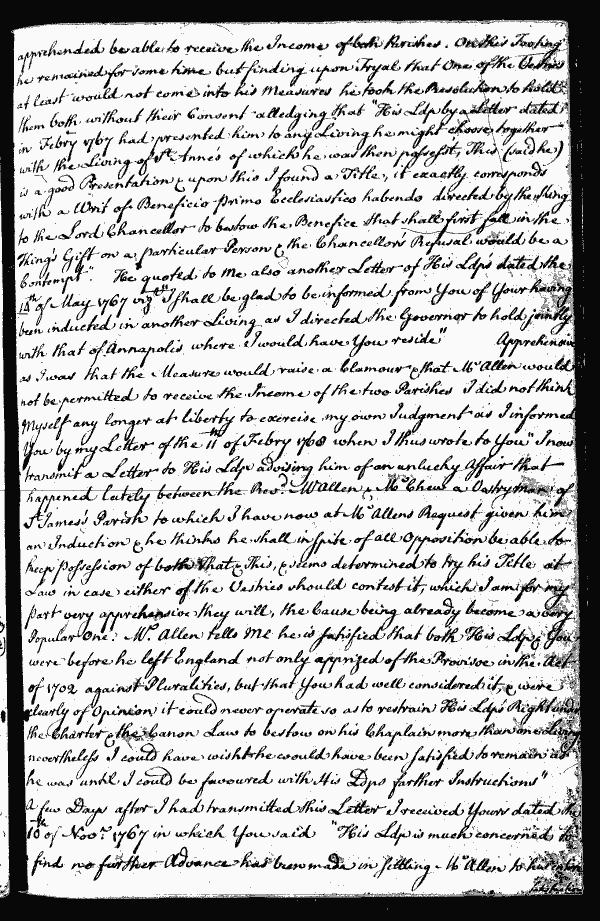 apprehended be able to receive the Income of both Parishes. On this Footing
he remained for some time but finding upon Tryal that One of the Vestries
at least would not come into his Measures he took the Resolution to hold
them both without their Consent alledging that "His Ldp by a Letter dated
in Febry 1767 had presented him to any Living he might choose, together
with the Living of St. Annes of which he was then possesst, This (said he)
is a good Presentation & upon this I found a Title, it exactly corresponds
with a Writ of Beneficio primo Ecclesiastico habendo directed by the King
to the Lord Chancellor to bestow the Benefice that shall first fall in the
King's Gift on a particular Person & the Chancellor's Refusal would be a
Contempt". He quoted to me also another Letter of His Ldp's dated the
14th of May 1767 vizt. "I shall be glad to be informed from You of Your having
been inducted in another Living as I directed the Governor to hold jointly
with that of Annapolis where I would have You reside" Apprehensive
as I was that the Measure would raise a Clamour & that Mr Allen would
not be permitted to receive the Income of the two Parishes I did not think
Myself any longer at liberty to exercise my own Judgment as I informed
You by my Letter of the 11th of Febry 1768 when I thus wrote to You "I now
transmit a Letter to His Ldp advising him of an unlucky Affair that
happened lately between the Revd. Mr Allen & Mr Chew a Vestryman of
St James's Parish to which I have now at Mr Allens Request given him
an Induction & he thinks he shall in spite of all Opposition be able to
keep Possession of both That & This, & seems determined to try his Title at
Law in case either of the Vestries should contest it, which I am for my
part very apprehensive they will, the Cause being already become a very
Popular One: Mr. Allen tells Me he is satisfied that both His Ldp & You
were before he left England not only apprized of the Provisoe in the Act
of 1702 against Pluralities, but that You had well considered it, & were
clearly of Opinion it could never operate so as to restrain His Ldp's Right under
the Charter & the Canon Law to bestow on his Chaplain more than one Living
nevertheless I could have wisht he would have been satisfied to remain as
he was until I could be favoured with His Ldps farther Instructions"
A few Days after I had transmitted this Letter I received Yours dated the
10th of Novr. 1767 in which You said "His Ldp is much concerned to
find no further Advance has been made in settling Mr Allen to his